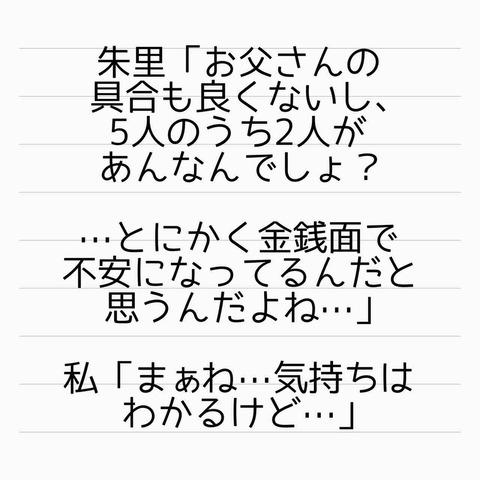 朱里「お父さんの
具合も良くないし、
5人のうち2人が
あんなんでしょ？
…とにかく金銭面で
不安になってるんだと
思うんだよね…」
私「まぁね…気持ちは
わかるけど…」